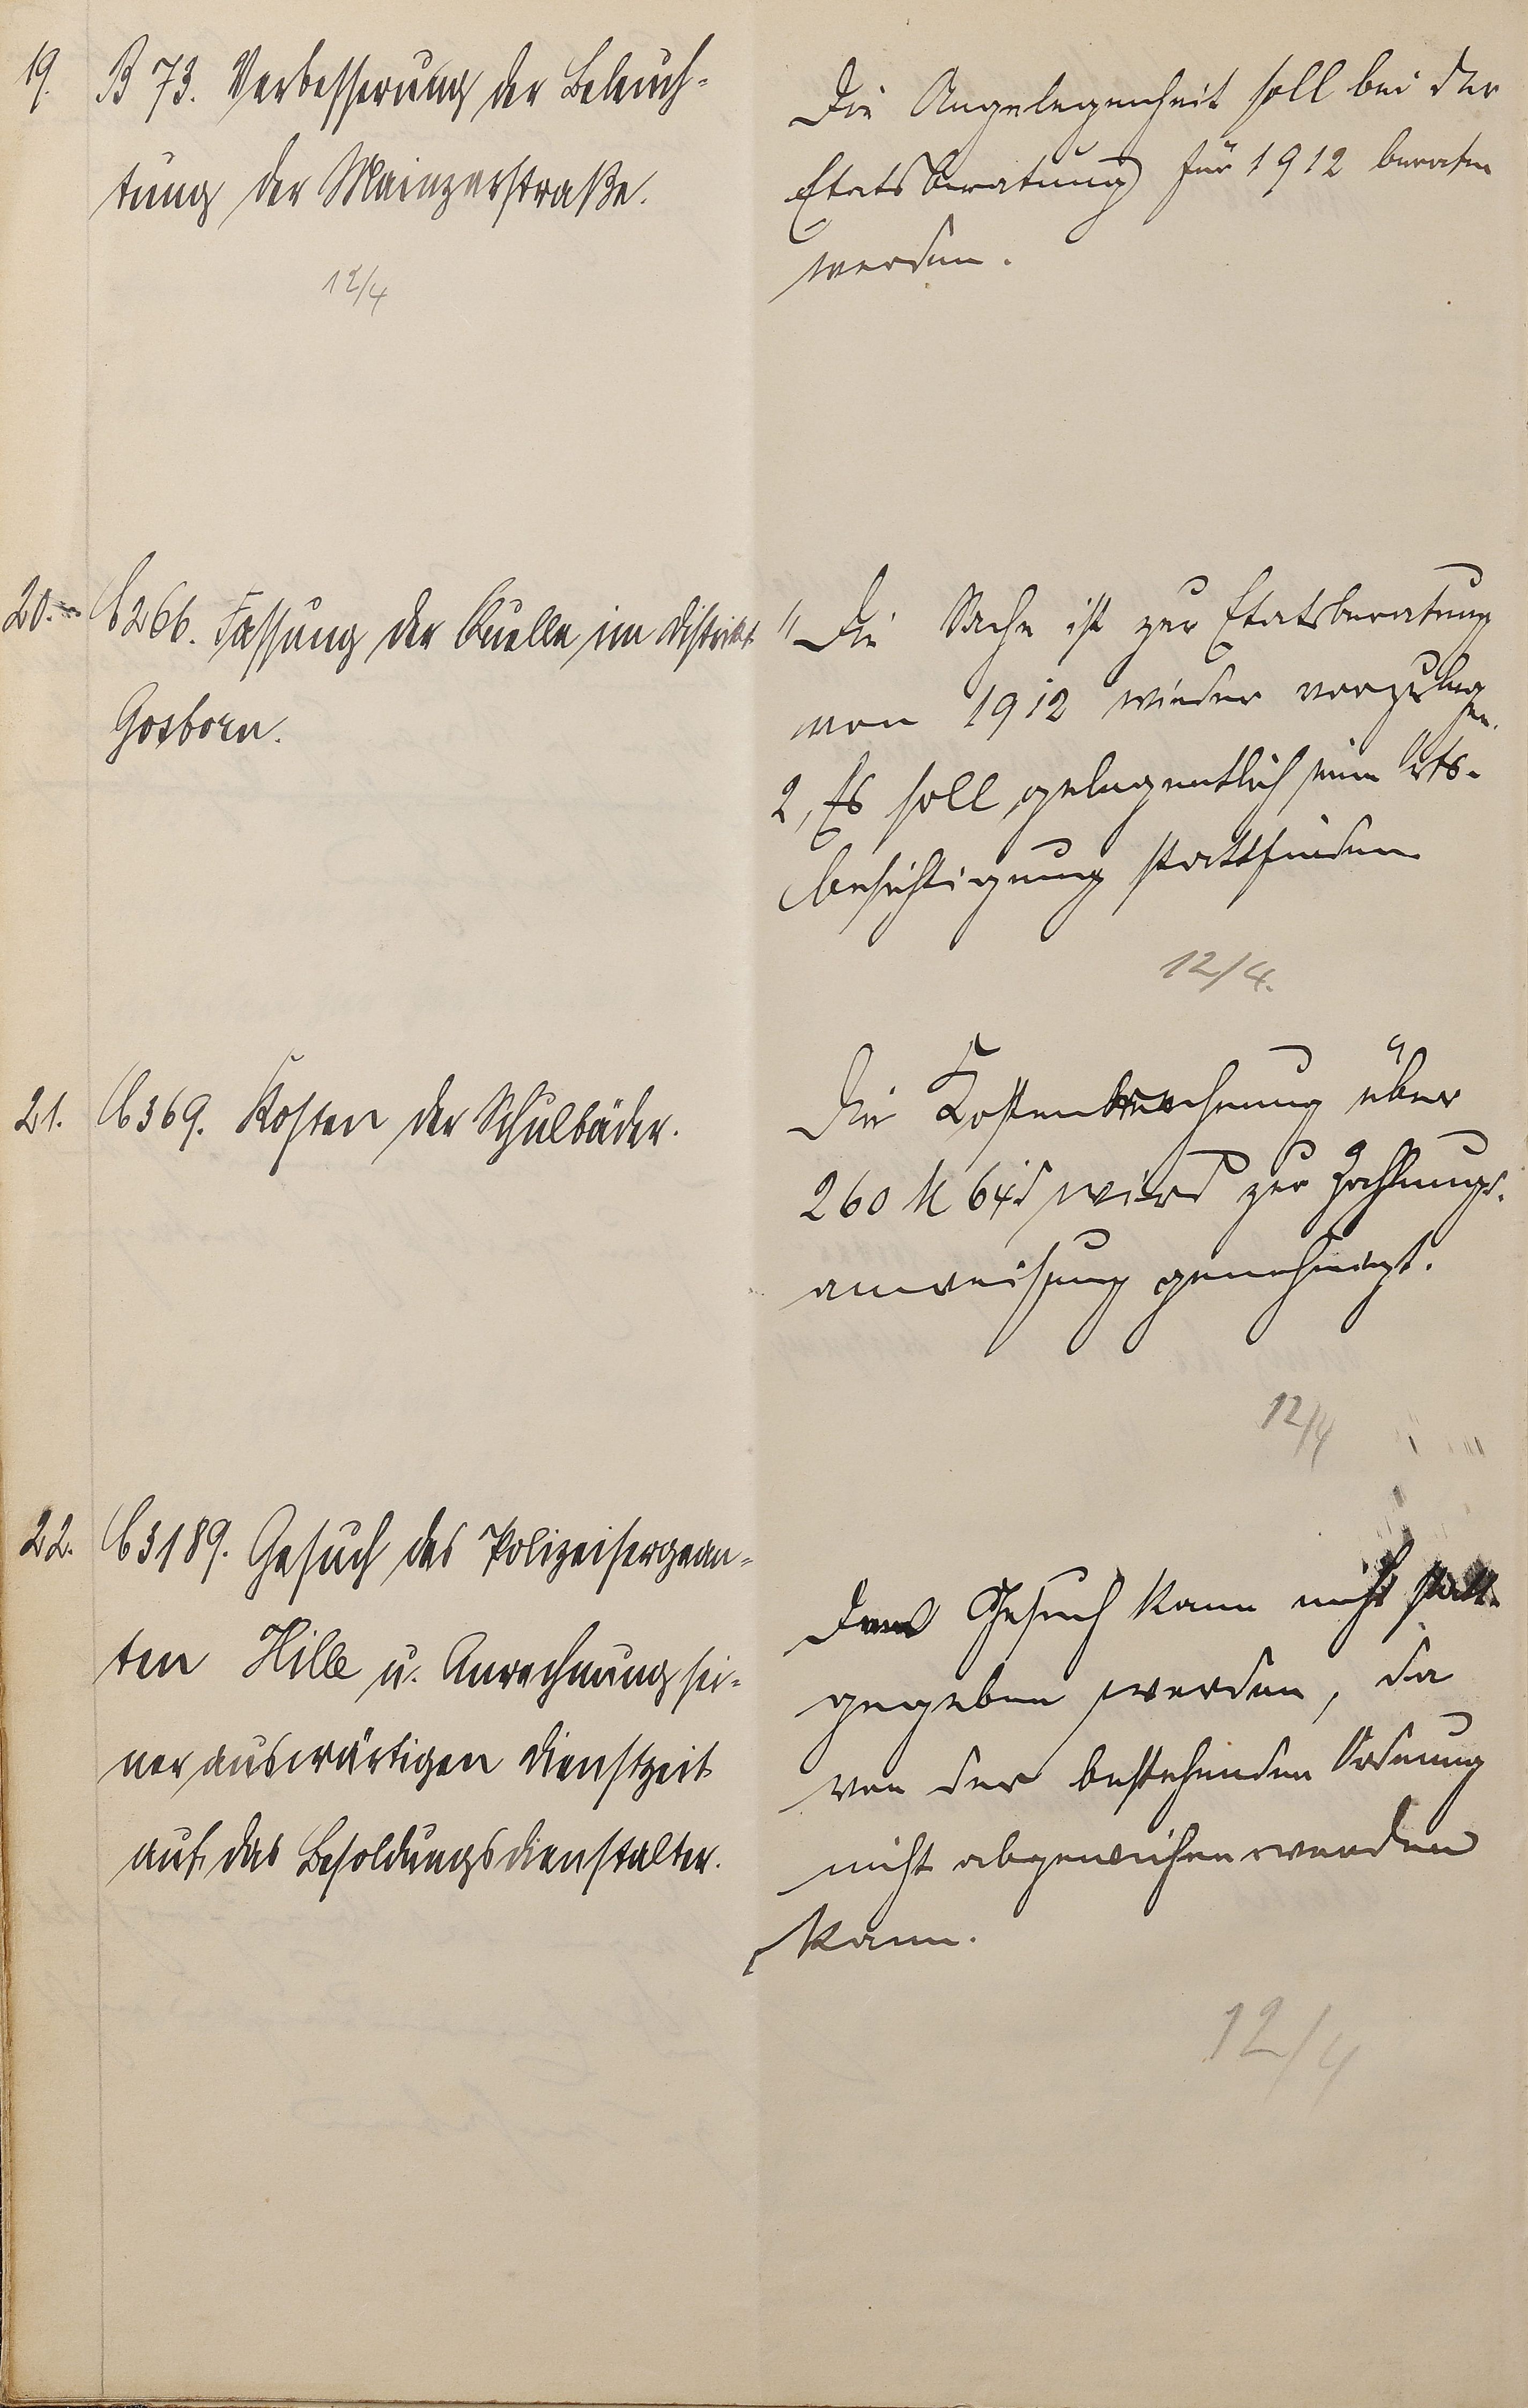 19. B 73. Verbesserung der Beleuch-
tung der Mainzerstraße.
12/4
Die Angelegenheit soll bei der
Etatsberatung für 1912 beraten
werden.
20. C 266. Fassung der Quelle im Distrikt
Gosborn.
1, Die Sache ist zur Etatsberatung
von 1912 wieder vorzuleg
en.
2, Es soll gelegentlich eine Orts-
besichtigung stattfinden
12/4.
21. C 369. Kosten der Schulbäder.
Die Kostenrechnung über
260 M 64 d wird zur Zahlungs-
anweisung genehmigt.
12/4
22. C 3189. Gesuch des Polizeisergean-
ten Hille u. Anrechnung sei-
ner auswärtigen Dienstzeit
auf das Besoldungsdienstalter.
Dem Gesuch kann nicht statt-
gegeben werden, da
von der bestehenden Ordnung
nicht abgewichen werden
kann.
12/4